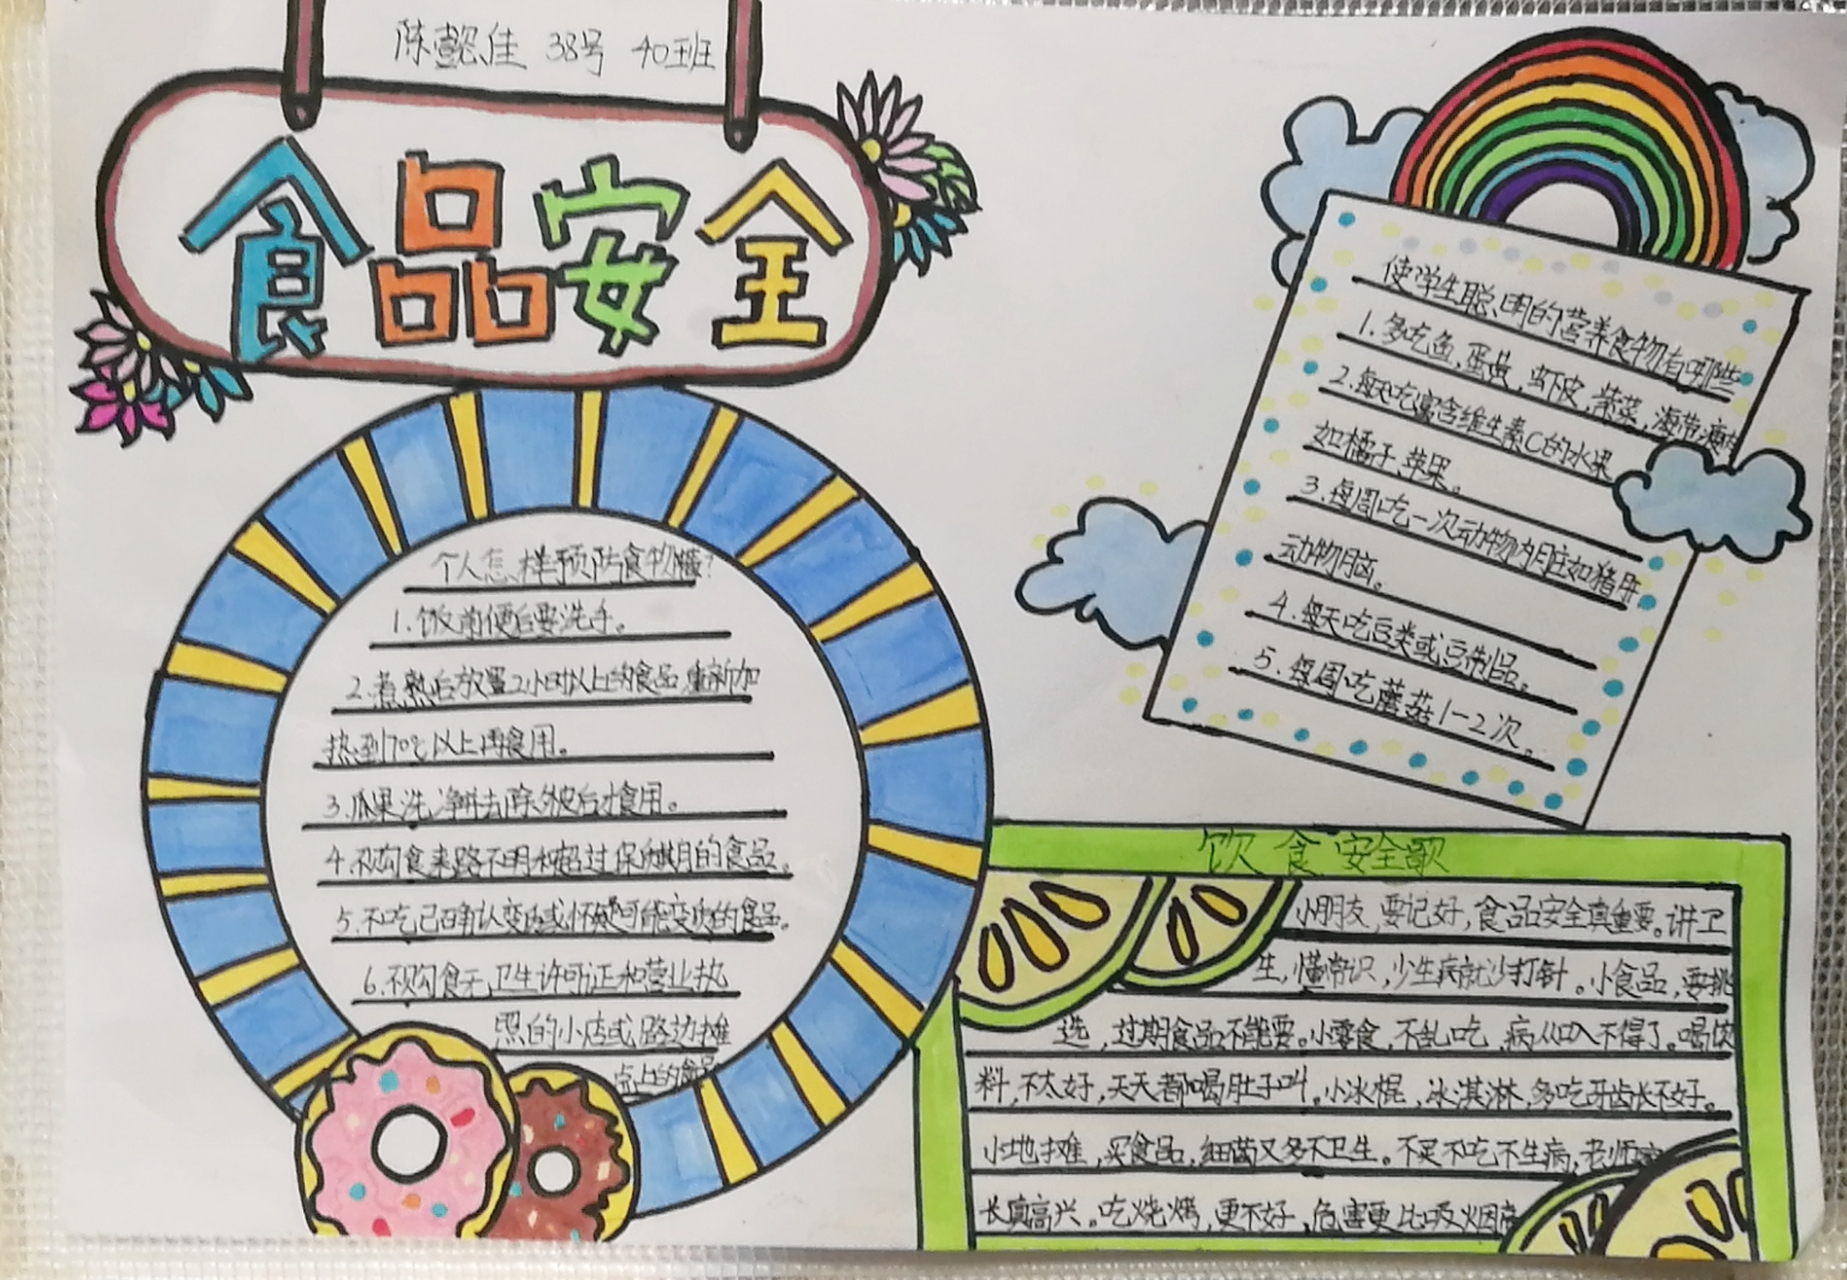 陈懿佳 38号 40班
食品安全
个人怎样预防食物
1.饭前便后要洗手。
2.煮熟后放置2小时以上的食品重新加
热到70℃以上再食用。
3.瓜果洗净并去除外皮后才食用。
4.不购食来路不明和超过保质期的食品。
5.不吃已确认变质或怀疑可能变质的食品。
6.不购食无卫生许可证和营业执
照的小店或路边摊
点上的食品
使学生聪明的营养食物有哪些
1.多吃鱼,蛋黄,虾皮,紫菜,海带,瘦
2.每天吃富含维生素C的水果
如橘子,苹果。
3.每周吃一次动物内脏如猪肝
动物脑。
4.每天吃豆类或豆制品。
5.每周吃蘑菇1-2次。
饮食安全歌
小朋友,要记好,食品安全真重要。讲卫
生,懂常识,少生病就少打针。小食品,要挑
选,过期食品不能要。小零食,不乱吃,病从口入不得了。喝饮
料,不太好,天天都喝肚子叫。小冰棍,冰淇淋,多吃牙齿长不好。
小地摊,买食品,细菌又多不卫生。不买不吃不生病,老师家
长真高兴。吃烧烤,更不好,危害更比吸烟高